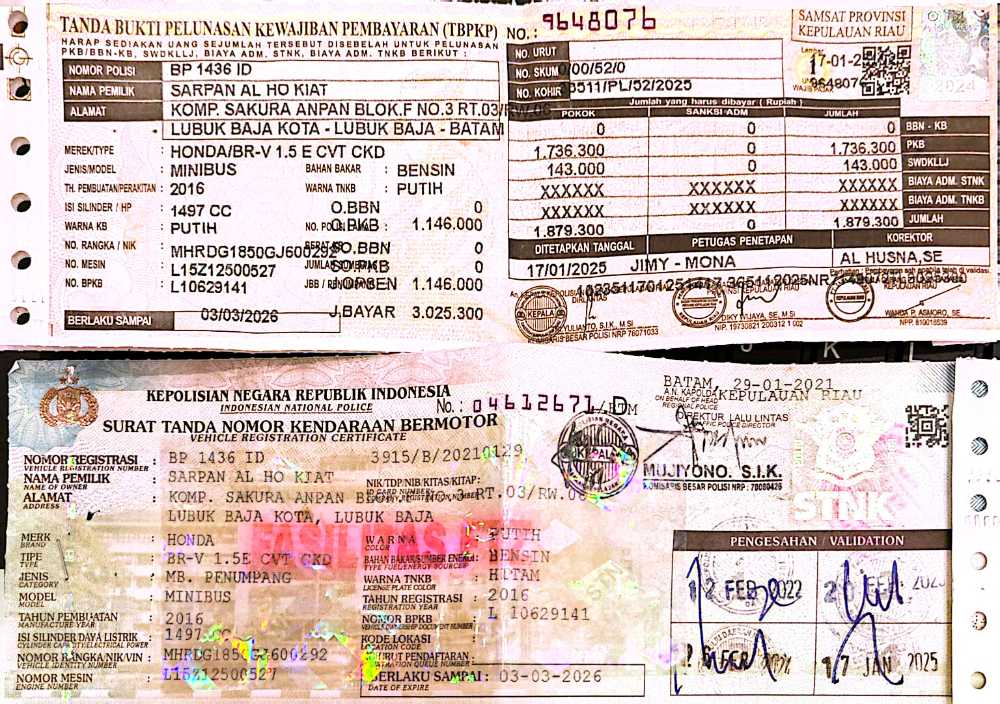 TANDA BUKTI PELUNASAN KEWAJIBAN PEMBAYARAN (TBPKP) NO.: 9648076
HARAP SEDIAKAN UANG SEJUMLAH TERSEBUT DISEBELAH UNTUK PELUNASAN
PKB/BBN-KB, SWDKLLJ, BIAYA ADM. STNK, BIAYA ADM. TNKB BERIKUT :
NOMOR POLISI BP 1436 ID
NAMA PEMILIK SARPAN AL HO KIAT
ALAMAT KOMP. SAKURA ANPAN BLOK.F NO.3 RT.03/RW.06
LUBUK BAJA KOTA - LUBUK BAJA - BATAM
MEREK/TYPE : HONDA/BR-V 1.5 E CVT CKD
JENIS/MODEL : MINIBUS BAHAN BAKAR : BENSIN
TH. PEMBUATAN/PERAKITAN : 2016 WARNA TNKB : PUTIH
ISI SILINDER / HP : 1497 CC O.BBN 0
WARNA KB : PUTIH O.PKB 1.146.000
NO. RANGKA / NIK : MHRDG1850GJ600292 SO.BBN 0
NO. MESIN : L15Z12500527 SO.PKB 0
NO. BPKB : L10629141 1.146.000
BERLAKU SAMPAI : 03/03/2026 J,BAYAR 3.025.300
SAMSAT PROVINSI
KEPULAUAN RIAU
NO. URUT
NO. SKUM 0/00/52/0
NO. KOHIR 511/PL/52/2025
Lembar
1
17-01-2
964807
2024
Jumlah yang harus dibayar ( Rupiah )
POKOK SANKSI ADM JUMLAH
0 0 0 BBN - KB
1.736.300 0 1.736.300 PKB
143.000 0 143.000 SWDKLLJ
XXXXXX XXXXXX XXXXXX BIAYA ADM. STNK
XXXXXX XXXXXX XXXXXX BIAYA ADM. TNKB
1.879.300 0 1.879.300 JUMLAH
DITETAPKAN TANGGAL PETUGAS PENETAPAN KOREKTOR
17/01/2025 JIMY - MONA AL HUSNA,SE
KEPULAUAN RIAU
KEPALA
YULIANTO, S.I.K, M.Si
KOMISARIS BESAR POLISI NRP 76071033
DIKY WIJAYA, SE, M.Si
NIP. 19730821 200312 1 002
WANDA P. ASMORO, SE
NPP. 810016539
KEPOLISIAN NEGARA REPUBLIK INDONESIA
INDONESIAN NATIONAL POLICE
No.: 04612671 D
SURAT TANDA NOMOR KENDARAAN BERMOTOR
VEHICLE REGISTRATION CERTIFICATE
NOMOR REGISTRASI : BP 1436 ID 3915/B/20210129
VEHICLE REGISTRATION NUMBER
NAMA PEMILIK : SARPAN AL HO KIAT NIK/TDP/NIB/KITAS/KITAP:
NAME OF OWNER
ALAMAT : KOMP. SAKURA ANPAN RT.03/RW.06
ADDRESS
LUBUK BAJA KOTA, LUBUK BAJA
MERK : HONDA WARNA : PUTIH
BRAND COLOR
TIPE : BR-V 1.5E CVT CKD BAHAN BAKAR/SUMBER ENERGI : BENSIN
TYPE TYPE FUEL/ENERGY SOURCES
JENIS : MB. PENUMPANG WARNA TNKB : HITAM
CATEGORY LICENSE PLATE COLOR
MODEL : MINIBUS TAHUN REGISTRASI : 2016
MODEL REGISTRATION YEAR
TAHUN PEMBUATAN : 2016 NOMOR BPKB : L 10629141
MANUFACTURE YEAR VEHICLE OWNERSHIP DOCUMENT NUMBER
ISI SILINDER/DAYA LISTRIK : 1497 CC KODE LOKASI :
CYLINDER CAPACITY/ELECTRICAL POWER LOCATION CODE
NOMOR RANGKA/NIK/VIN : MHRDG1850GJ600292 NO URUT PENDAFTARAN :
VEHICLE IDENTITY NUMBER REGISTRATION QUEUE NUMBER
NOMOR MESIN : L15Z12500527 BERLAKU SAMPAI : 03-03-2026
ENGINE NUMBER DATE OF EXPIRE
BATAM, 29-01-2021
A.N. KAPOLDA KEPULAUAN RIAU
ON BEHALF OF HEAD
REGIONAL POLICE
DIREKTUR LALU LINTAS
TRAFFIC POLICE DIRECTOR
KEPALA
MUJIYONO. S.I.K.
KOMISARIS BESAR POLISI NRP : 70080426
STNK
PENGESAHAN / VALIDATION
2 FEB 2022
FEB 2023
17 JAN 2025